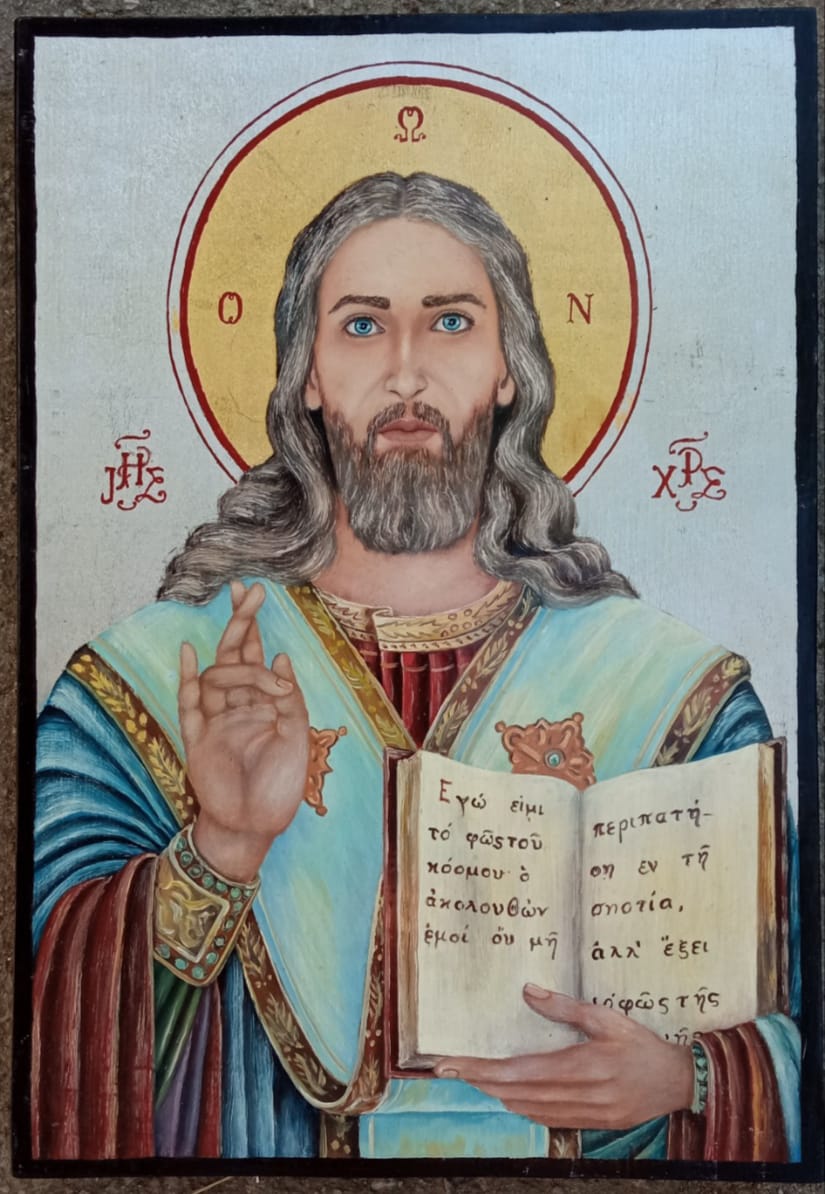 Ω
Ο Ν
JHΣ
ΧΡΣ
Εγώ εἰμι
τό φῶς τοῦ
κόσμου· ὁ
ἀκολουθών
ἐμοί ὀυ μῆ
περιπατή-
ση εν τῆ
σποτία,
ἀλλ' ἔξει
φῶς τῆς